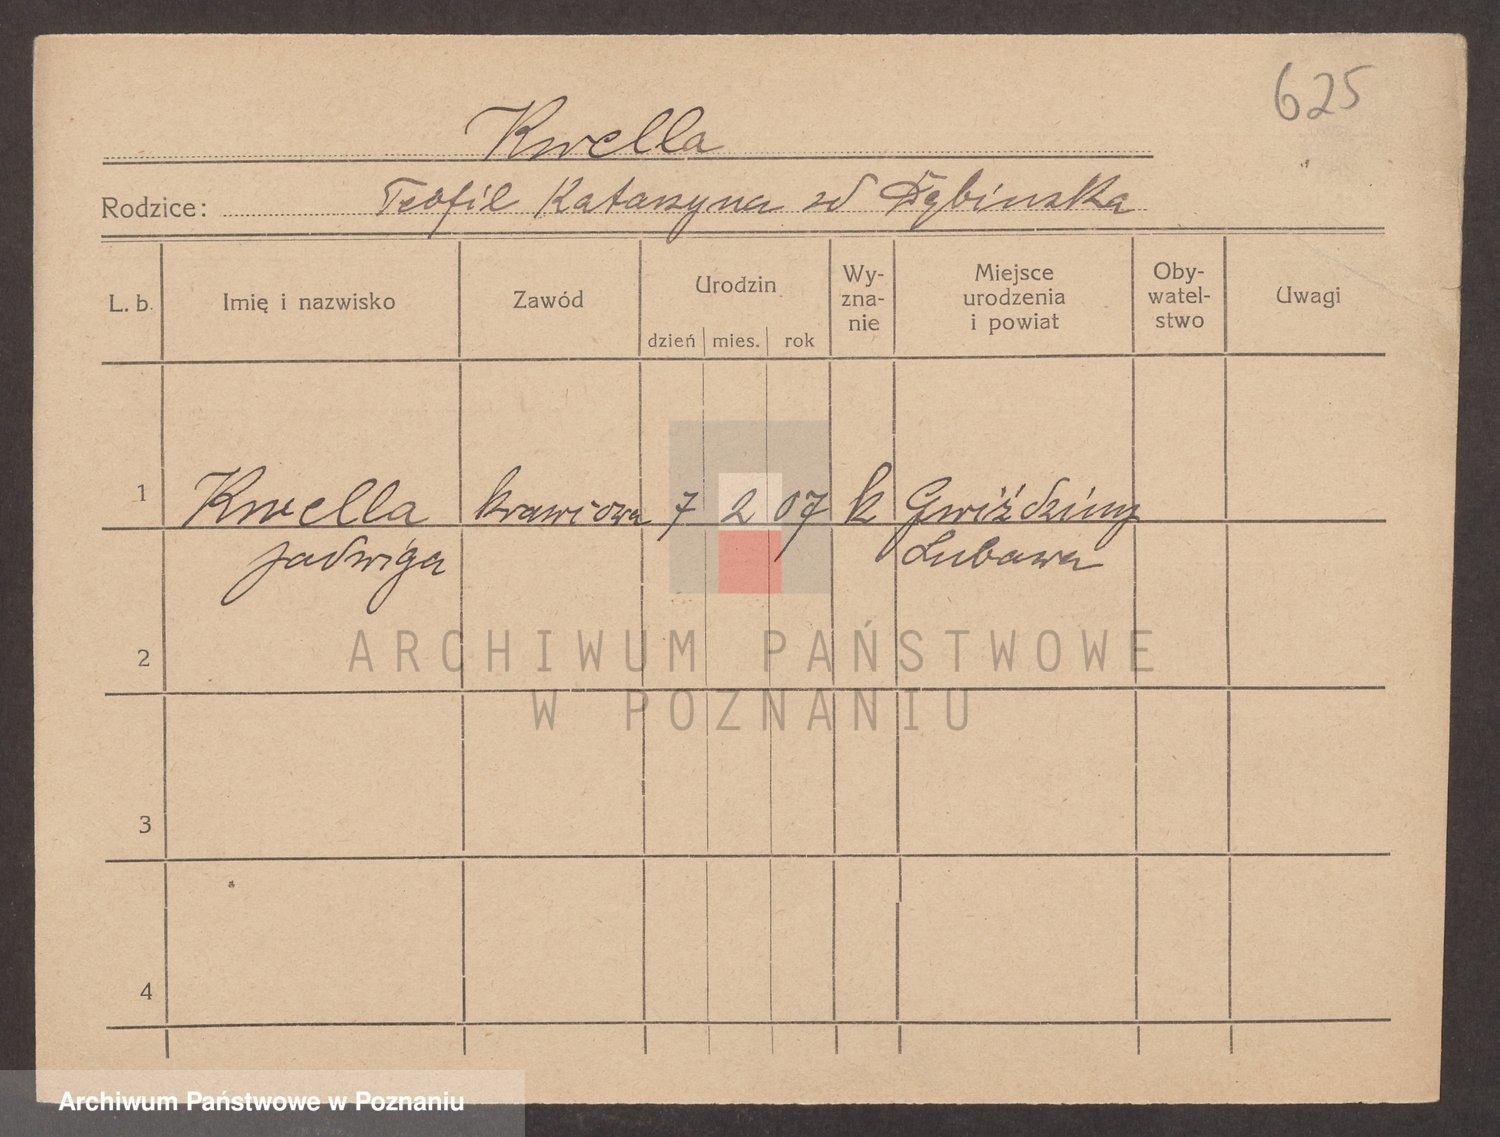 625
Kwella
Rodzice: Teofil Katarzyna zd Dębinska
L. b. Imię i nazwisko Zawód Urodzin dzień mies. rok Wy-zna-nie Miejsce urodzenia i powiat Oby-watel-stwo Uwagi
1 Kwella krawcowa 7 2 07 k Gwiździny
Jadwiga Lubawa
2
3
4
ARCHIWUM PAŃSTWOWE
W POZNANIU
Archiwum Państwowe w Poznaniu